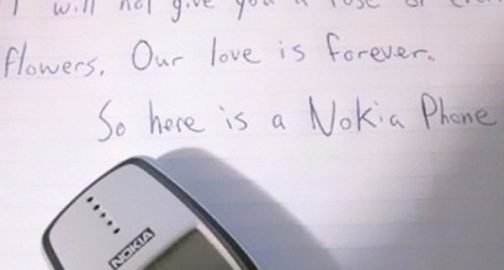 I will not give you a rose or even
flowers. Our love is forever.
So here is a Nokia Phone
NOKIA